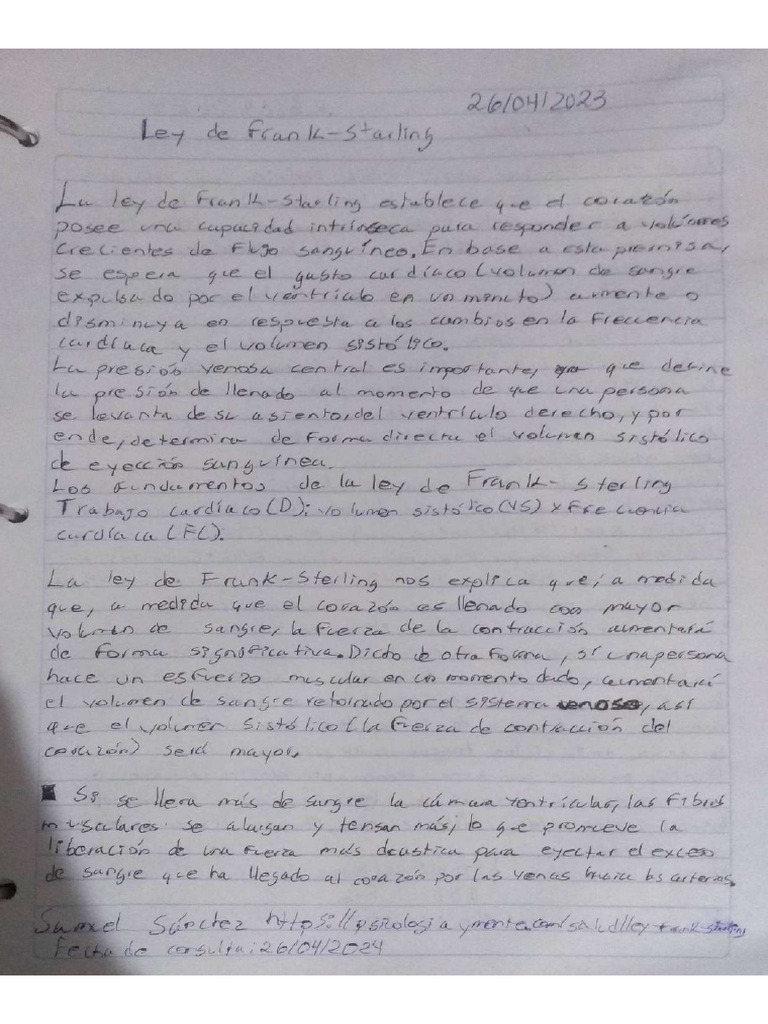 26/04/2023
Ley de Frank-Starling
La ley de Frank-Starling establece que el corazón
posee una capacidad intrínseca para responder a volúmenes
crecientes de Flujo sanguíneo. En base a esta premisa,
se espera que el gusto cardíaco (volumen de sangre
expulsado por el ventrículo en un minuto) aumente o
disminuya en respuesta a los cambios en la Frecuencia
cardíaca y el volumen sistólico.
La presión venosa central es importante, que define
la presión de llenado al momento de que una persona
se levanta de su asiento, del ventrículo derecho, y por
ende, determina de forma directa el volumen sistólico
de eyección sanguínea.
Los fundamentos de la ley de Frank-Sterling
Trabajo cardíaco (D): volumen sistólico (VS) x Frecuencia
cardíaca (FC).
La ley de Frank-Sterling nos explica que, a medida
que, a medida que el corazón es llenado con mayor
volumen de sangre, la fuerza de la contracción aumentará
de forma significativa. Dicho de otra forma, si una persona
hace un esfuerzo muscular en un momento dado, aumentará
el volumen de sangre retornado por el sistema venoso, así
que el volumen sistólico (la fuerza de contracción del
corazón) será mayor.
Si se llena más de sangre la cámara ventricular, las fibras
musculares se alargan y tensan más, lo que promueve la
liberación de una fuerza más drástica para eyectar el exceso
de sangre que ha llegado al corazón por las venas hacia las arterias.
Samuel Sánchez https://psicologiaymente.com/salud/ley-frank-starling
Fecha de consulta: 26/04/2024